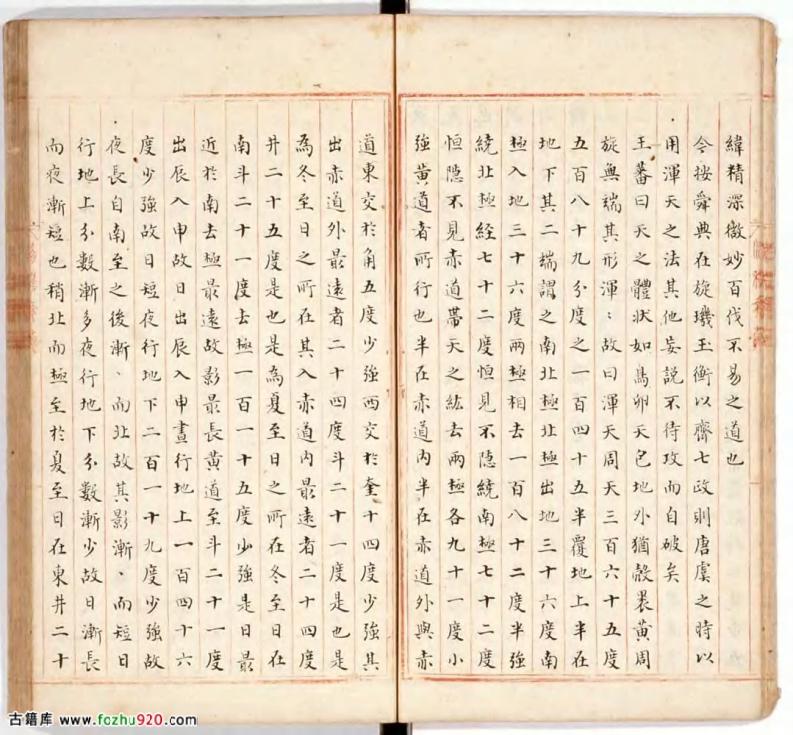 緯精深微妙百伐不易之道也
今按舜典在旋璣玉衡以齊七政則唐虞之時以
用渾天之法其他妄説不待攻而自破矣
王蕃曰天之體狀如鳥卵天包地外猶殼裹黃周
旋無端其形渾〻故曰渾天周天三百六十五度
五百八十九分度之一百四十五半覆地上半在
地下其二端謂之南北極北極出地三十六度南
極入地三十六度兩極相去一百八十二度半強
繞北極経七十二度恒見不隱繞南極七十二度
恒隱不見赤道帶天之紘去兩極各九十一度小
強黄道者所行也半在赤道内半在赤道外與赤
道東交於角五度少強西交於奎十四度少強其
出赤道外最遠者二十四度斗二十一度是也是
為冬至日之所在其入赤道内最遠者二十四度
井二十五度是也是為夏至日之所在冬至日在
南斗二十一度去極一百一十五度少強是日最
近於南去極最遠故影最長黄道至斗二十一度
出辰入申故日出辰入申晝行地上一百四十六
度少強故日短夜行地下二百一十九度少強故
夜長自南至之後漸〻而北故其影漸〻而短日
行地上分數漸多夜行地下分數漸少故日漸長
而夜漸短也稍北而極至於夏至日在東井二十
古籍库 www.fozhu920.com